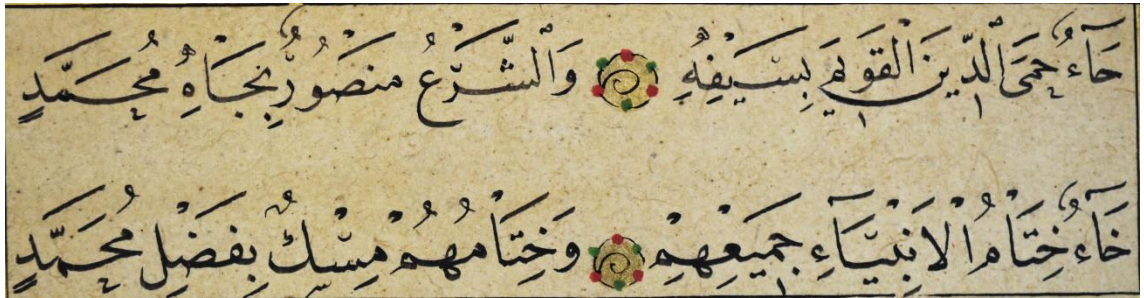 حَآءُ حِمَى ٱلدِّينِ الْقَوِيمِ بِسَيْفِهِ وَٱلشَّرْعُ مَنْصُورٌ بِجَاهِ مُحَمَّدٍ
خَآءُ خِتَامُ الْاَنْبِيَآءِ جَمِيعِهِمْ وَخِتَامُهُمْ مِسْكٌ بِفَضْلِ مُحَمَّدٍ